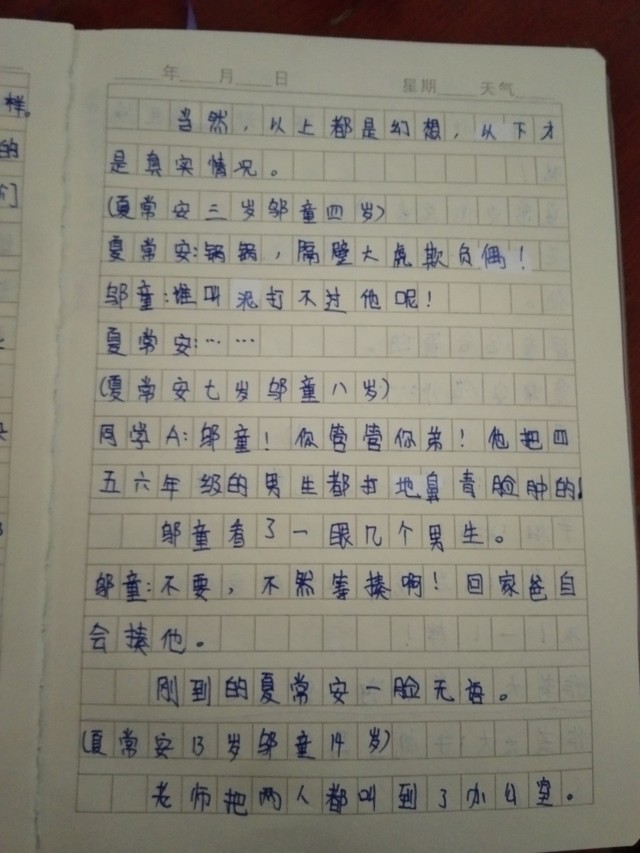 年 月 日 星期 天气
样。
的
当然，以上都是幻想，以下才
是真实情况。
(夏常安三岁邬童四岁)
夏常安:锅锅，隔壁大虎欺负偶！
邬童:谁叫泥打不过他呢！
夏常安:……
(夏常安七岁邬童八岁)
同学A:邬童！你管管你弟！他把四
五六年级的男生都打地鼻青脸肿的！
邬童看了一眼几个男生。
邬童:不要，不然等揍啊！回家爸自
会揍他。
刚到的夏常安一脸无语。
(夏常安13岁邬童14岁)
老师把两人都叫到了办公室。